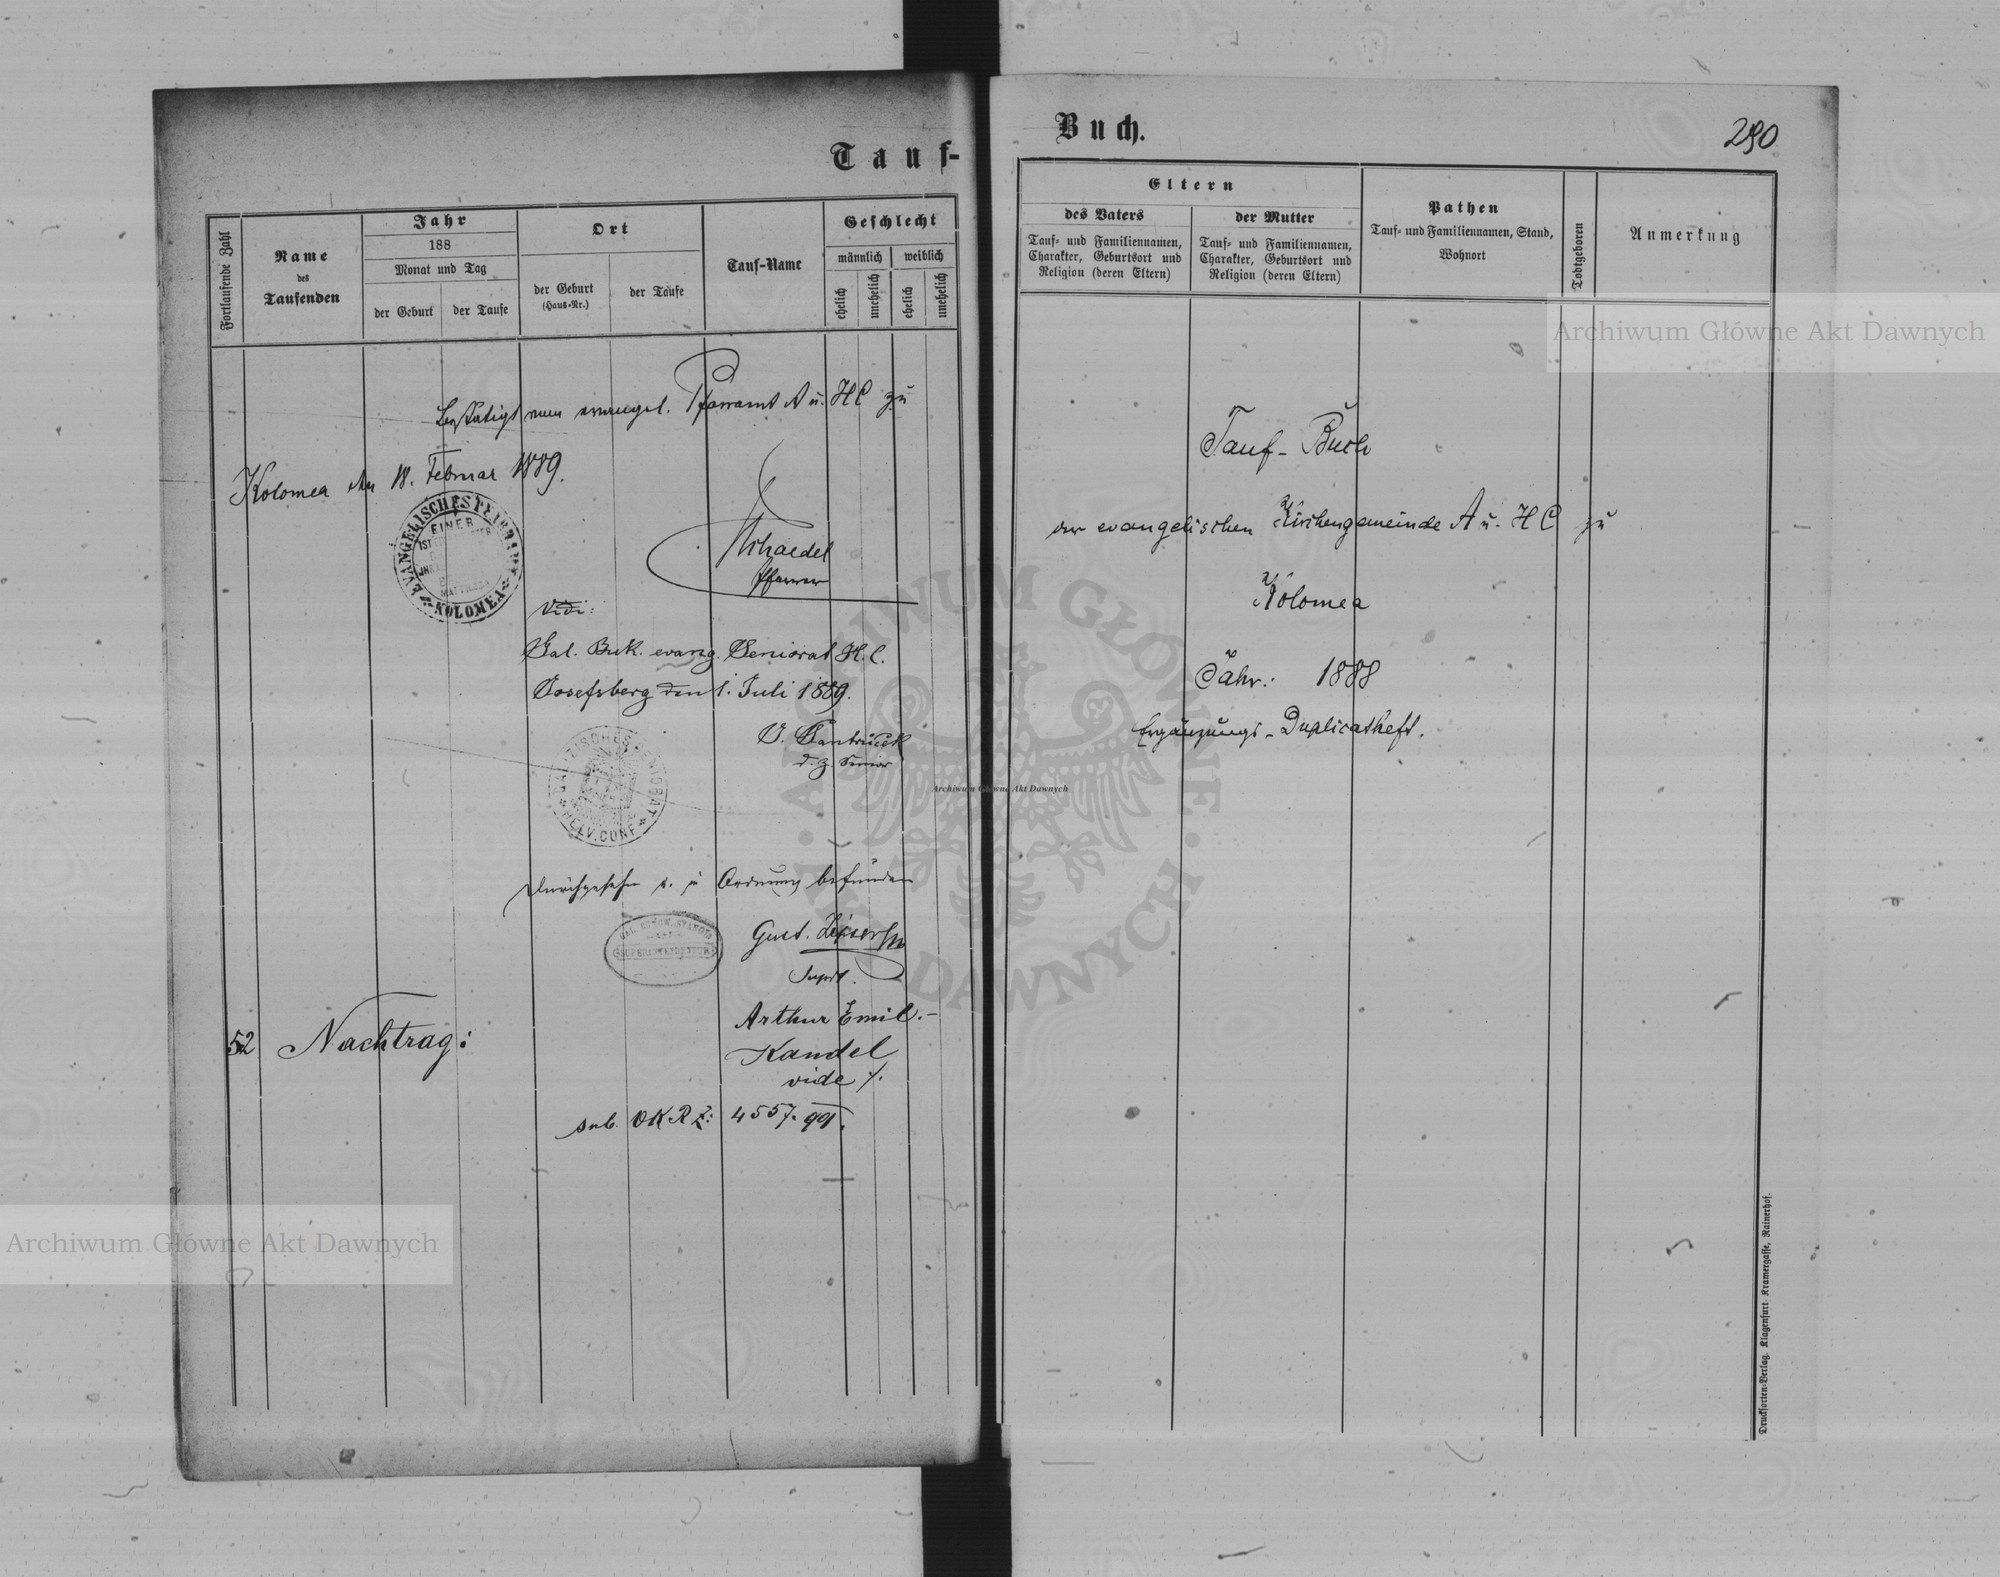 Tauf-
Fortlaufende Zahl
Name
des
Taufenden
Jahr
188
Monat und Tag
der Geburt
der Taufe
Ort
der Geburt
(Haus-Nr.)
der Taufe
Tauf-Name
Geschlecht
männlich
weiblich
ehelich
unehelich
ehelich
unehelich
Bestätigt vom evangel. Pfarramt A u. HC zu
Kolomea den 18. Februar 1889.
EVANGELISCHES PFARRAMT
KOLOMEA
Pfarrer
Vidi:
Gal. Buk. evang. Seniorat H. C.
Josefsberg den 1. Juli 1889.
d. z. Senior
SENIORAT
HELV. CONF.
Durchgesehen u. in Ordnung befunden
SUPERINTENDENTUR
Gust.
Supdt.
52 Nachtrag:
Arthur Emil.-
Kandel
vide /.
sub. OKR Z: 4557.99.
Buch.
290
Eltern
des Vaters
Tauf- und Familiennamen,
Charakter, Geburtsort und
Religion (deren Eltern)
der Mutter
Tauf- und Familiennamen,
Charakter, Geburtsort und
Religion (deren Eltern)
Pathen
Tauf- und Familiennamen, Stand,
Wohnort
Todtgeboren
Anmerkung
Tauf- Buch
der evangelischen Kirchengemeinde A u. HC zu
Kolomea
Jahr: 1888
Ergänzungs- Duplicatheft.
Drucksorten-Verlag, Klagenfurt Kramergasse, Rainerhof.
Archiwum Główne Akt Dawnych
Archiwum Główne Akt Dawnych
Archiwum Główne Akt Dawnych
ARCHIWUM GŁÓWNE · AKT DAWNYCH ·